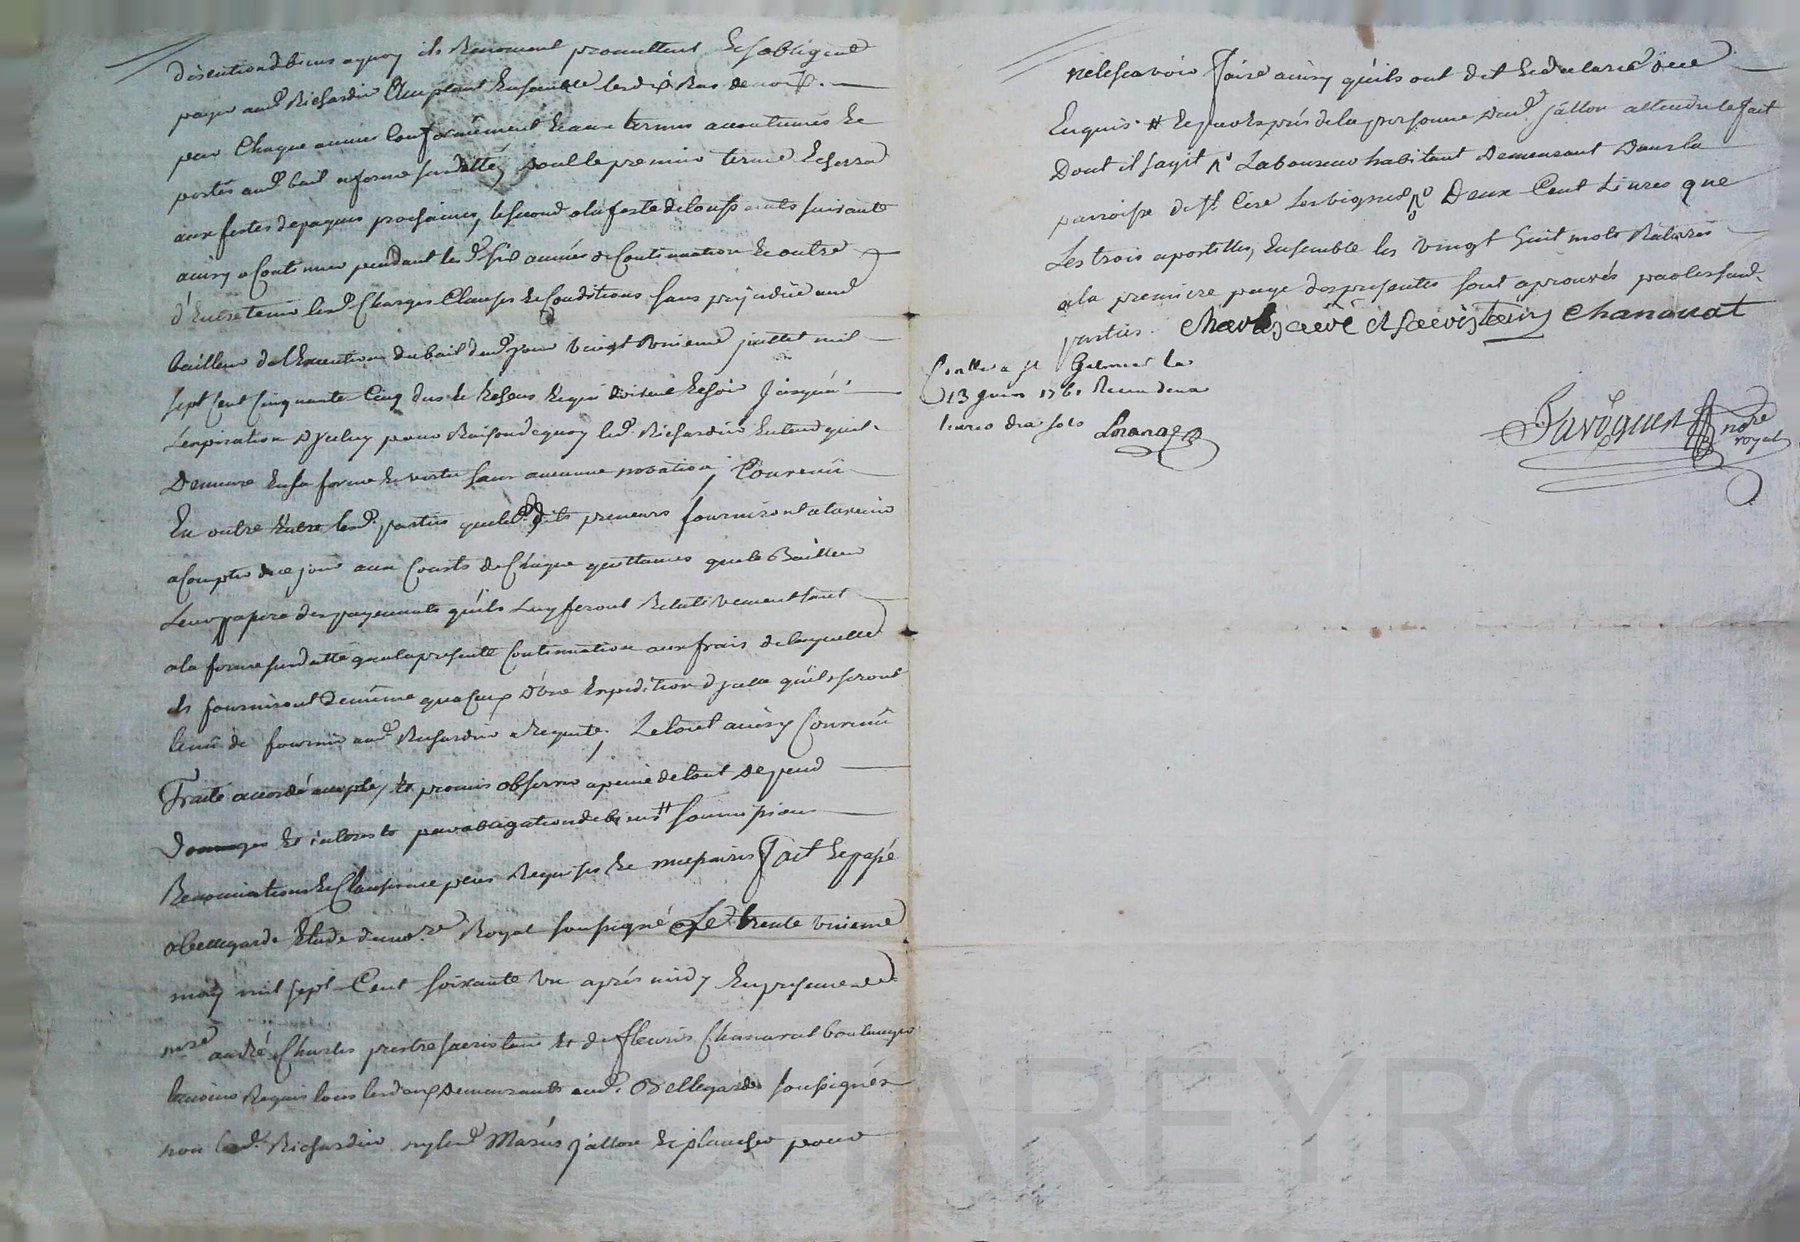 discution de biens a quoy ils Renoncent promettent Et s'obligent
payer aud. Richardier Chaptard Ensemble les
pour Chaque année Conformément Et aux termes accoutumés Et
portés aud. bail a ferme susdatté, dont le premier terme Echerra
aux festes de paques prochaines, le second a la feste de toussaints suivante
ainsy a Continuer pendant les d. six années de Continuation Et outre
d'Entretenir les d. Charges Clauses Et Conditions sans prejudice aud.
bailleur de l'Execution du bail dud. jour vingt unieme juillet mil
sept Cent Cinquante Cinq
L'expiration d'yceluy pour Raison de quoy led. Richardier Entend qu'il
Demeure En sa forme Et vertu sans aucune novation, Convenû
En outre Entre les d. parties que les dits preneurs fourniront a l'avenir
a Compter de ce jour aux Cousts de Chaque quittances que le Bailleur
Leur passera des payements qu'ils Luy feront Relativement tant
a la ferme susdatté qu'a la presente Continuation aux frais de laquelle
ils fourniront de même qu'a Ceux d'une Expedition d'ycelle qu'ils seront
tenû de fournir aud. Richardier a Requete, Le tout ainsy Convenû
Traité accordé accepté, Et promis observer a peine de tout Depend
Domages Et interests par obligation de biens # soumissions
Renonciations Et Clauses a ce pour Requises Et necessaires Fait Et passé
a bellegarde Etude du no.re Royal soussigné Le trente unieme
may mil sept Cent soixante un après midy En presence de
m.re andré Charles prestre sacristain Et de fleuris Chanavat boulanger
temoins Requis tous les deux Demeurants aud. Bellegarde soussignés
non led. Richardier ny les d. Mariés jallon Et plancher pour
ne le scavoir Faire ainsy qu'ils ont dit Et declaré de ce
Enquis # Et par Exprés de la personne dud. jallon attendu le fait
Dont il s'agit Laboureur habitant Demeurant Dans la
parroisse de st. Cire Les vignes Deux Cent Livres que
Les trois apostilles, Ensemble les vingt huit mots Raturés
a la premiere page des presentes sont aprouvés par lesd.
parties. Charles curé et sacristain Chanavat
Conllé a st Galmier le
13 juin 1761 Receu douze
livres dix sols
Favoguest no.re
royal
CHAREYRON